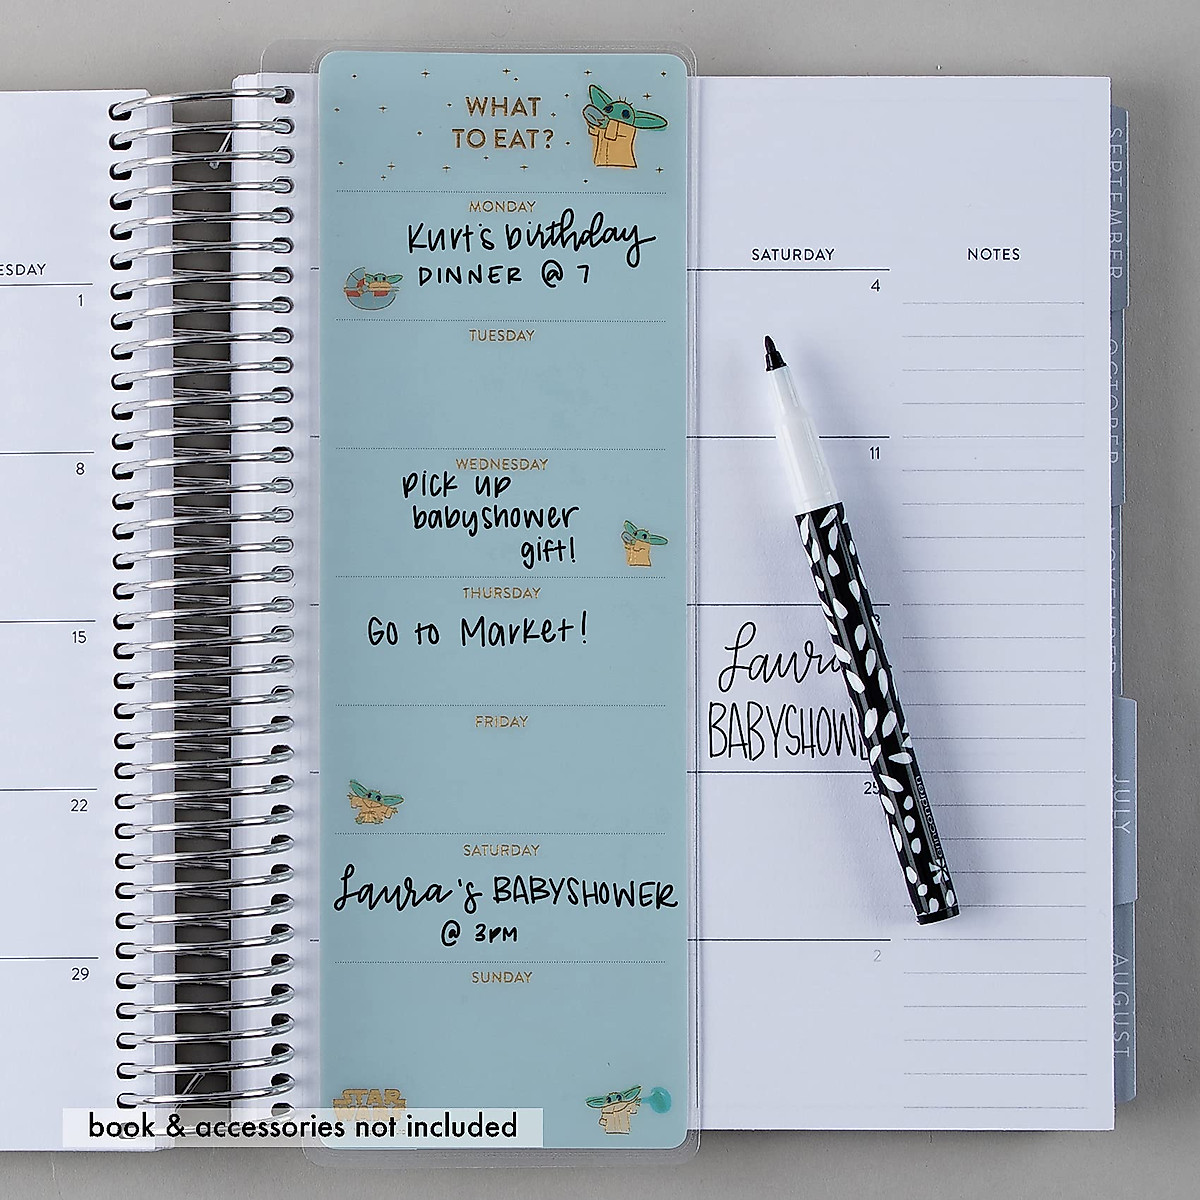 WHAT
TO EAT?
MONDAY
Kurt's birthday
DINNER @ 7
TUESDAY
WEDNESDAY
pick up
babyshower
gift!
THURSDAY
Go to Market!
FRIDAY
SATURDAY
Laura's BABYSHOWER
@ 3PM
SUNDAY
STAR
WARS
ESDAY
1
8
15
22
29
SATURDAY
NOTES
4
11
Laura
BABYSHOWE
25
2
SEPTEMBER
OCTOBER
NOVEMBER
JULY
AUGUST
erin condren
book & accessories not included